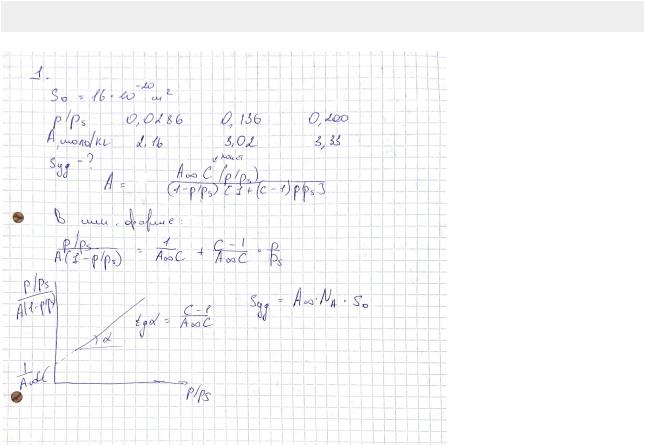 1.
S₀ = 16 · 10⁻²⁰ м²
p/ps 0,0286 0,136 0,200
A, моль/кг 2,16 3,02 3,33
Sуд - ?
A = A∞ C (p/ps) / (1-p/ps) [1+(C-1) p/ps]
В лин. форме:
p/ps / A(1-p/ps) = 1 / A∞C + C-1 / A∞C · p/ps
p/ps / A(1-p/ps)
tgα = C-1 / A∞C
Sуд = A∞ · NA · S₀
α
1 / A∞C
p/ps